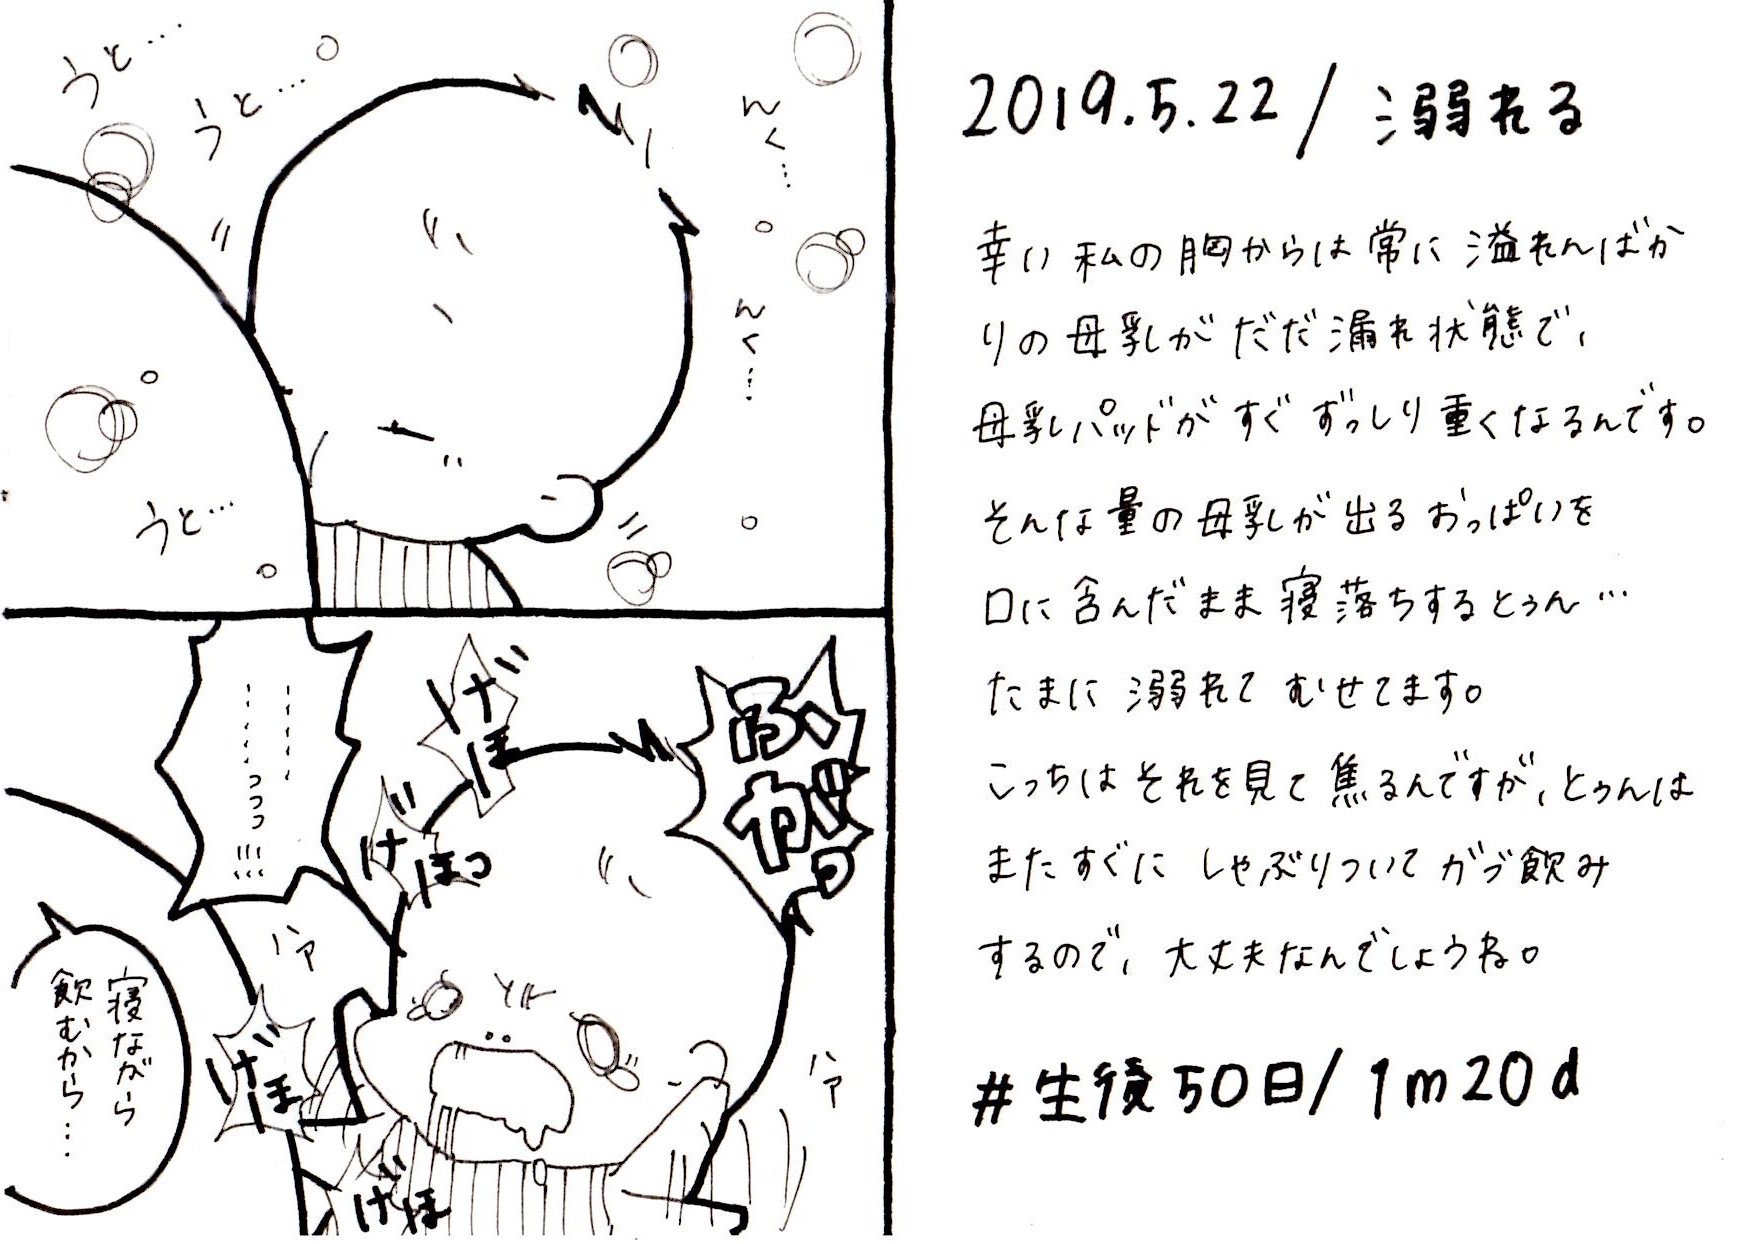 うと…
うと…
んく…
んく…
うと…
ふがっ
げほ
げほっ
…………っっっ!!!
ハァ
げほ
寝ながら
飲むから…
ハァ
げほ
2019.5.22/溺れる
幸い私の胸からは常に溢れんばか
りの母乳がだだ漏れ状態で、
母乳パッドがすぐずっしり重くなるんです。
そんな量の母乳が出るおっぱいを
口に含んだまま寝落ちするとぅん…
たまに溺れてむせてます。
こっちはそれを見て焦るんですが、とぅんは
またすぐにしゃぶりついてガブ飲み
するので、大丈夫なんでしょうね。
#生後50日/1m20d